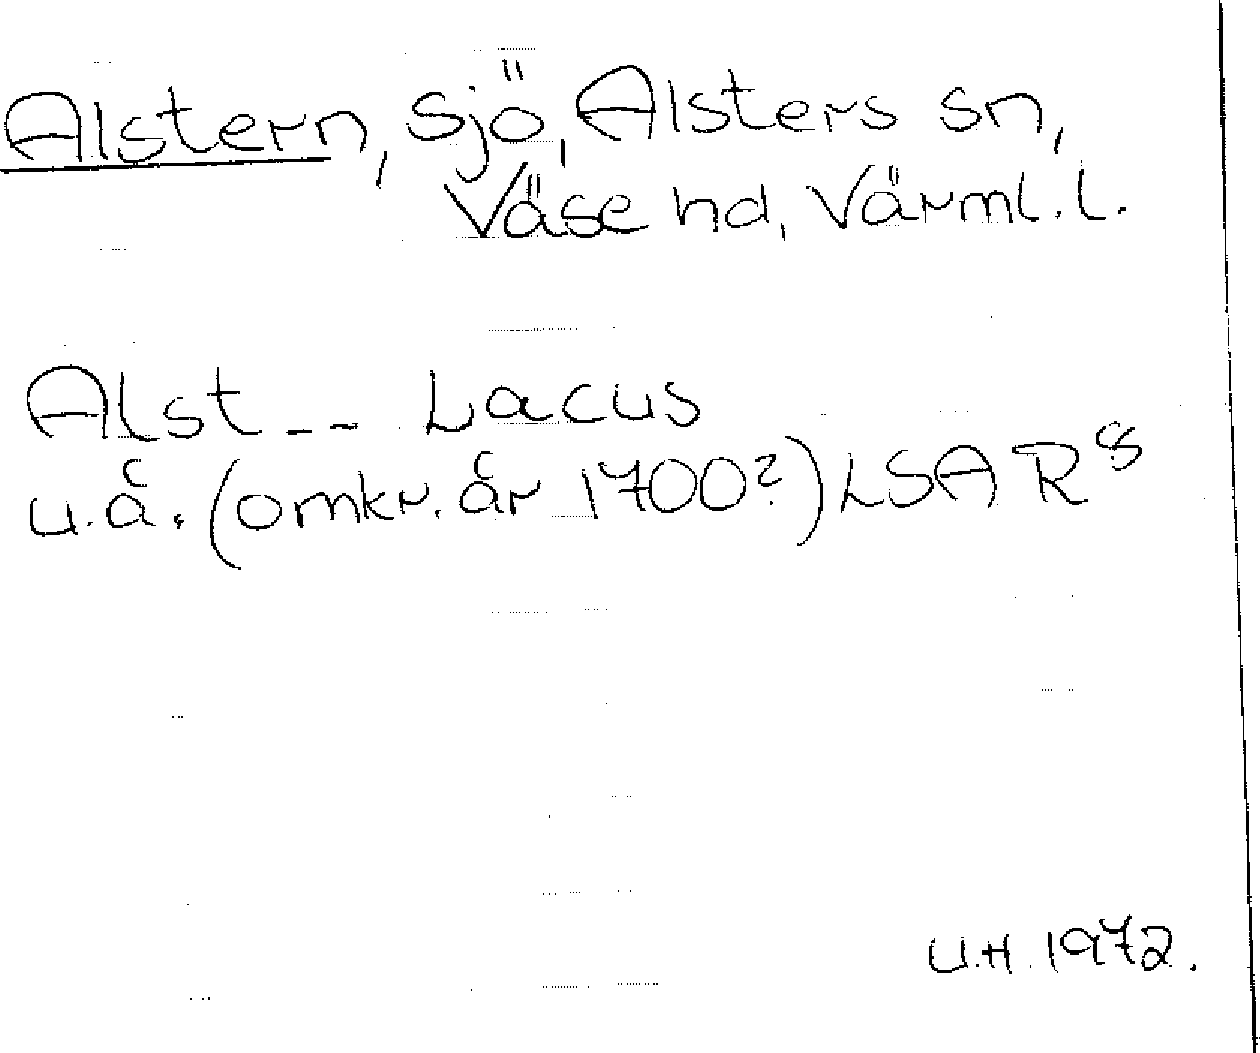 Alstern, sjö, Alsters sn,
Väse hd, Värml. l.
Alst-- Lacus
u.å. (omkr. år 1700?) LSA R 8
U.H. 1972.